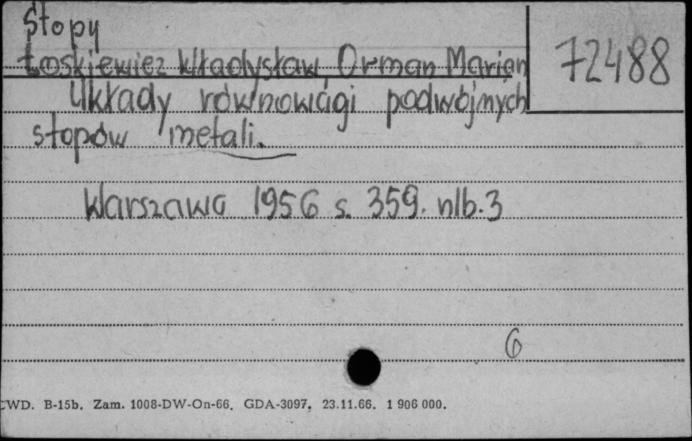 Stopy
Łoskiewicz Władysław, Orman Marian
72488
Układy równowagi podwójnych
stopów metali.
Warszawa 1956 s. 359. nlb. 3
6
CWD. B-15b. Zam. 1008-DW-On-66. GDA-3097. 23.11.66. 1 906 000.